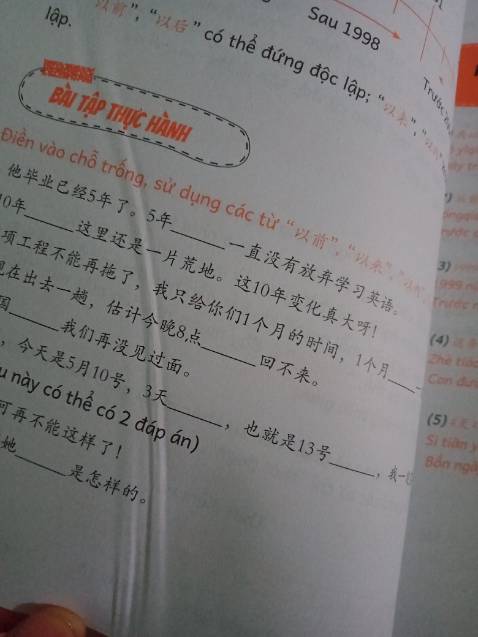 以前”, “以后” có thể đứng độc lập; “以来”, “以内”
lập.
Sau 1998
Trước
BÀI TẬP THỰC HÀNH
Điền vào chỗ trống, sử dụng các từ “以前”, “以来”,
他毕业已经5年了。5年______一直没有放弃学习英语。
10年______这里还是一片荒地。这10年变化真大呀!
项工程不能再拖了,我只给你们1个月的时间,1个月______
现在出去一趟,估计今晚8点______回不来。
国______我们再没见过面。
,今天是5月10号,3天______,也就是13号______,我一
u này có thể có 2 đáp án)
可再不能这样了!
她______是怎样的。
3)
(4)
Zhè
Con
(5)
Sì tiān
Bốn ngà